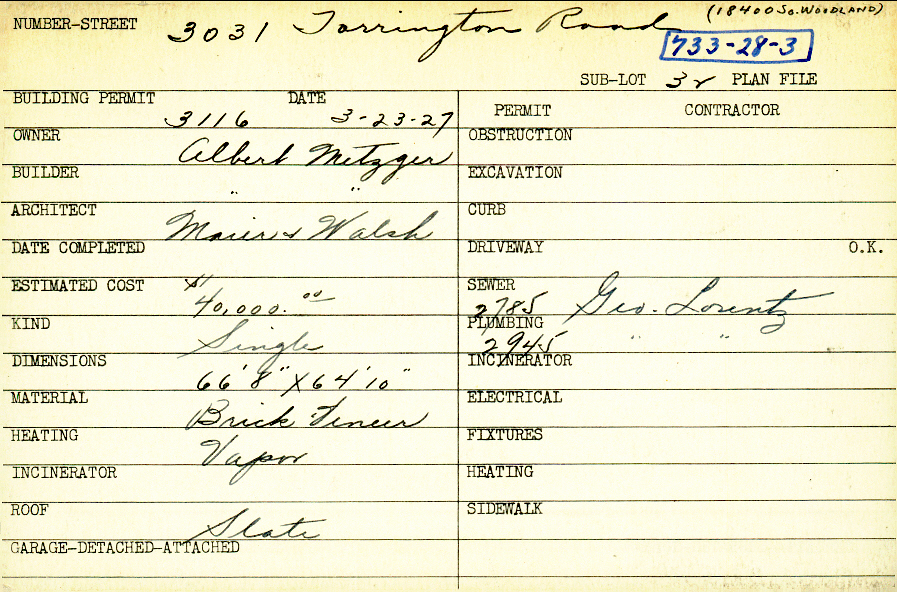 NUMBER-STREET 3031 Torrington Road (18400 So. WOODLAND)
733-28-3
SUB-LOT 32 PLAN FILE
BUILDING PERMIT 3116 DATE 3-23-27
OWNER Albert Metzger
BUILDER " "
ARCHITECT Maier & Walsh
DATE COMPLETED
ESTIMATED COST $40,000.00
KIND Single
DIMENSIONS 66' 8" X 64' 10"
MATERIAL Brick Veneer
HEATING Vapor
INCINERATOR
ROOF Slate
GARAGE-DETACHED-ATTACHED
PERMIT CONTRACTOR
OBSTRUCTION
EXCAVATION
CURB
DRIVEWAY O.K.
SEWER 2785 Geo. Lorentz
PLUMBING 2945 " "
INCINERATOR
ELECTRICAL
FIXTURES
HEATING
SIDEWALK